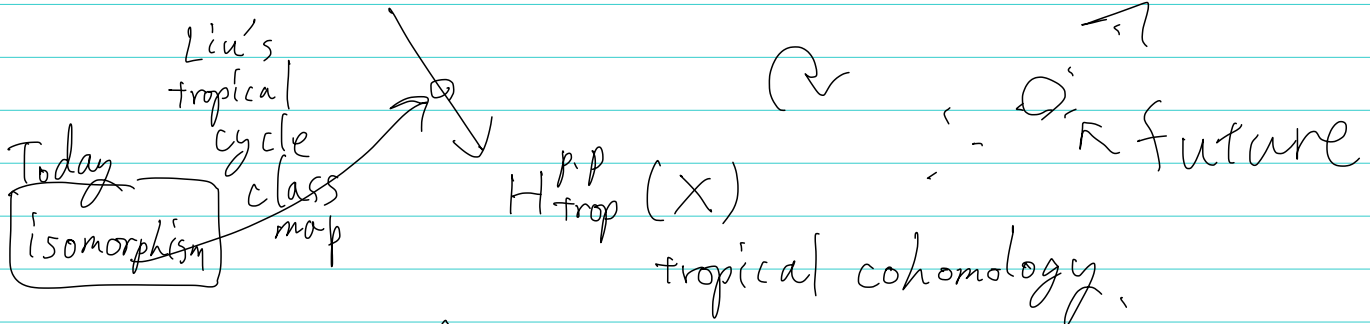 Liu's
tropical
cycle
class
map
Today
isomorphism
H^{p,p}_{trop}(X)
tropical cohomology.
future